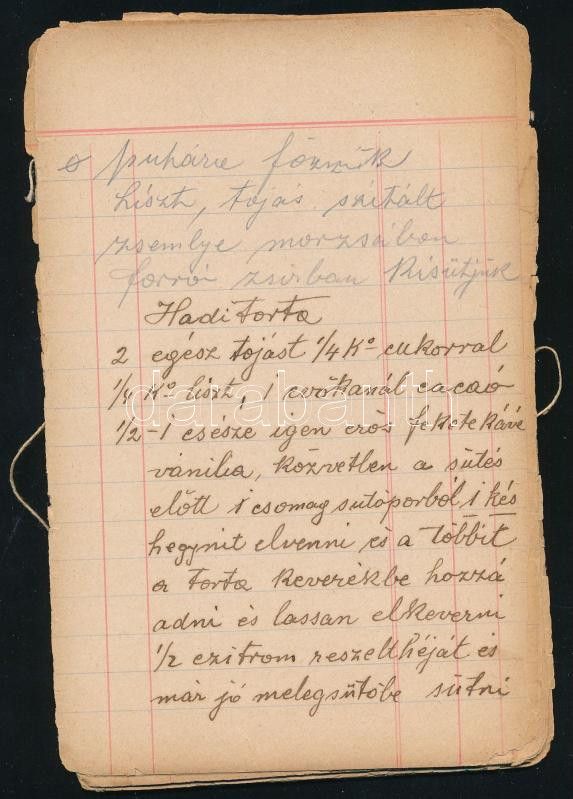 puhára főzzük
liszt, tojás szitált
zsemlye morzsában
forró zsirban kisütjük
Hadi torta
2 egész tojást 1/4 Ko cukorral
1/4 Ko liszt, 1 evőkanál cacaó
1/2-1 csésze igen erős feketekávé
vánilia, közvetlen a sütés
előtt 1 csomag sütőporból, 1 kés
hegynit elvenni és a többit
a torta keverékbe hozzá
adni és lassan elkeverni
1/2 czitrom reszelthéját és
már jó melegsütőbe sütni
darabanth